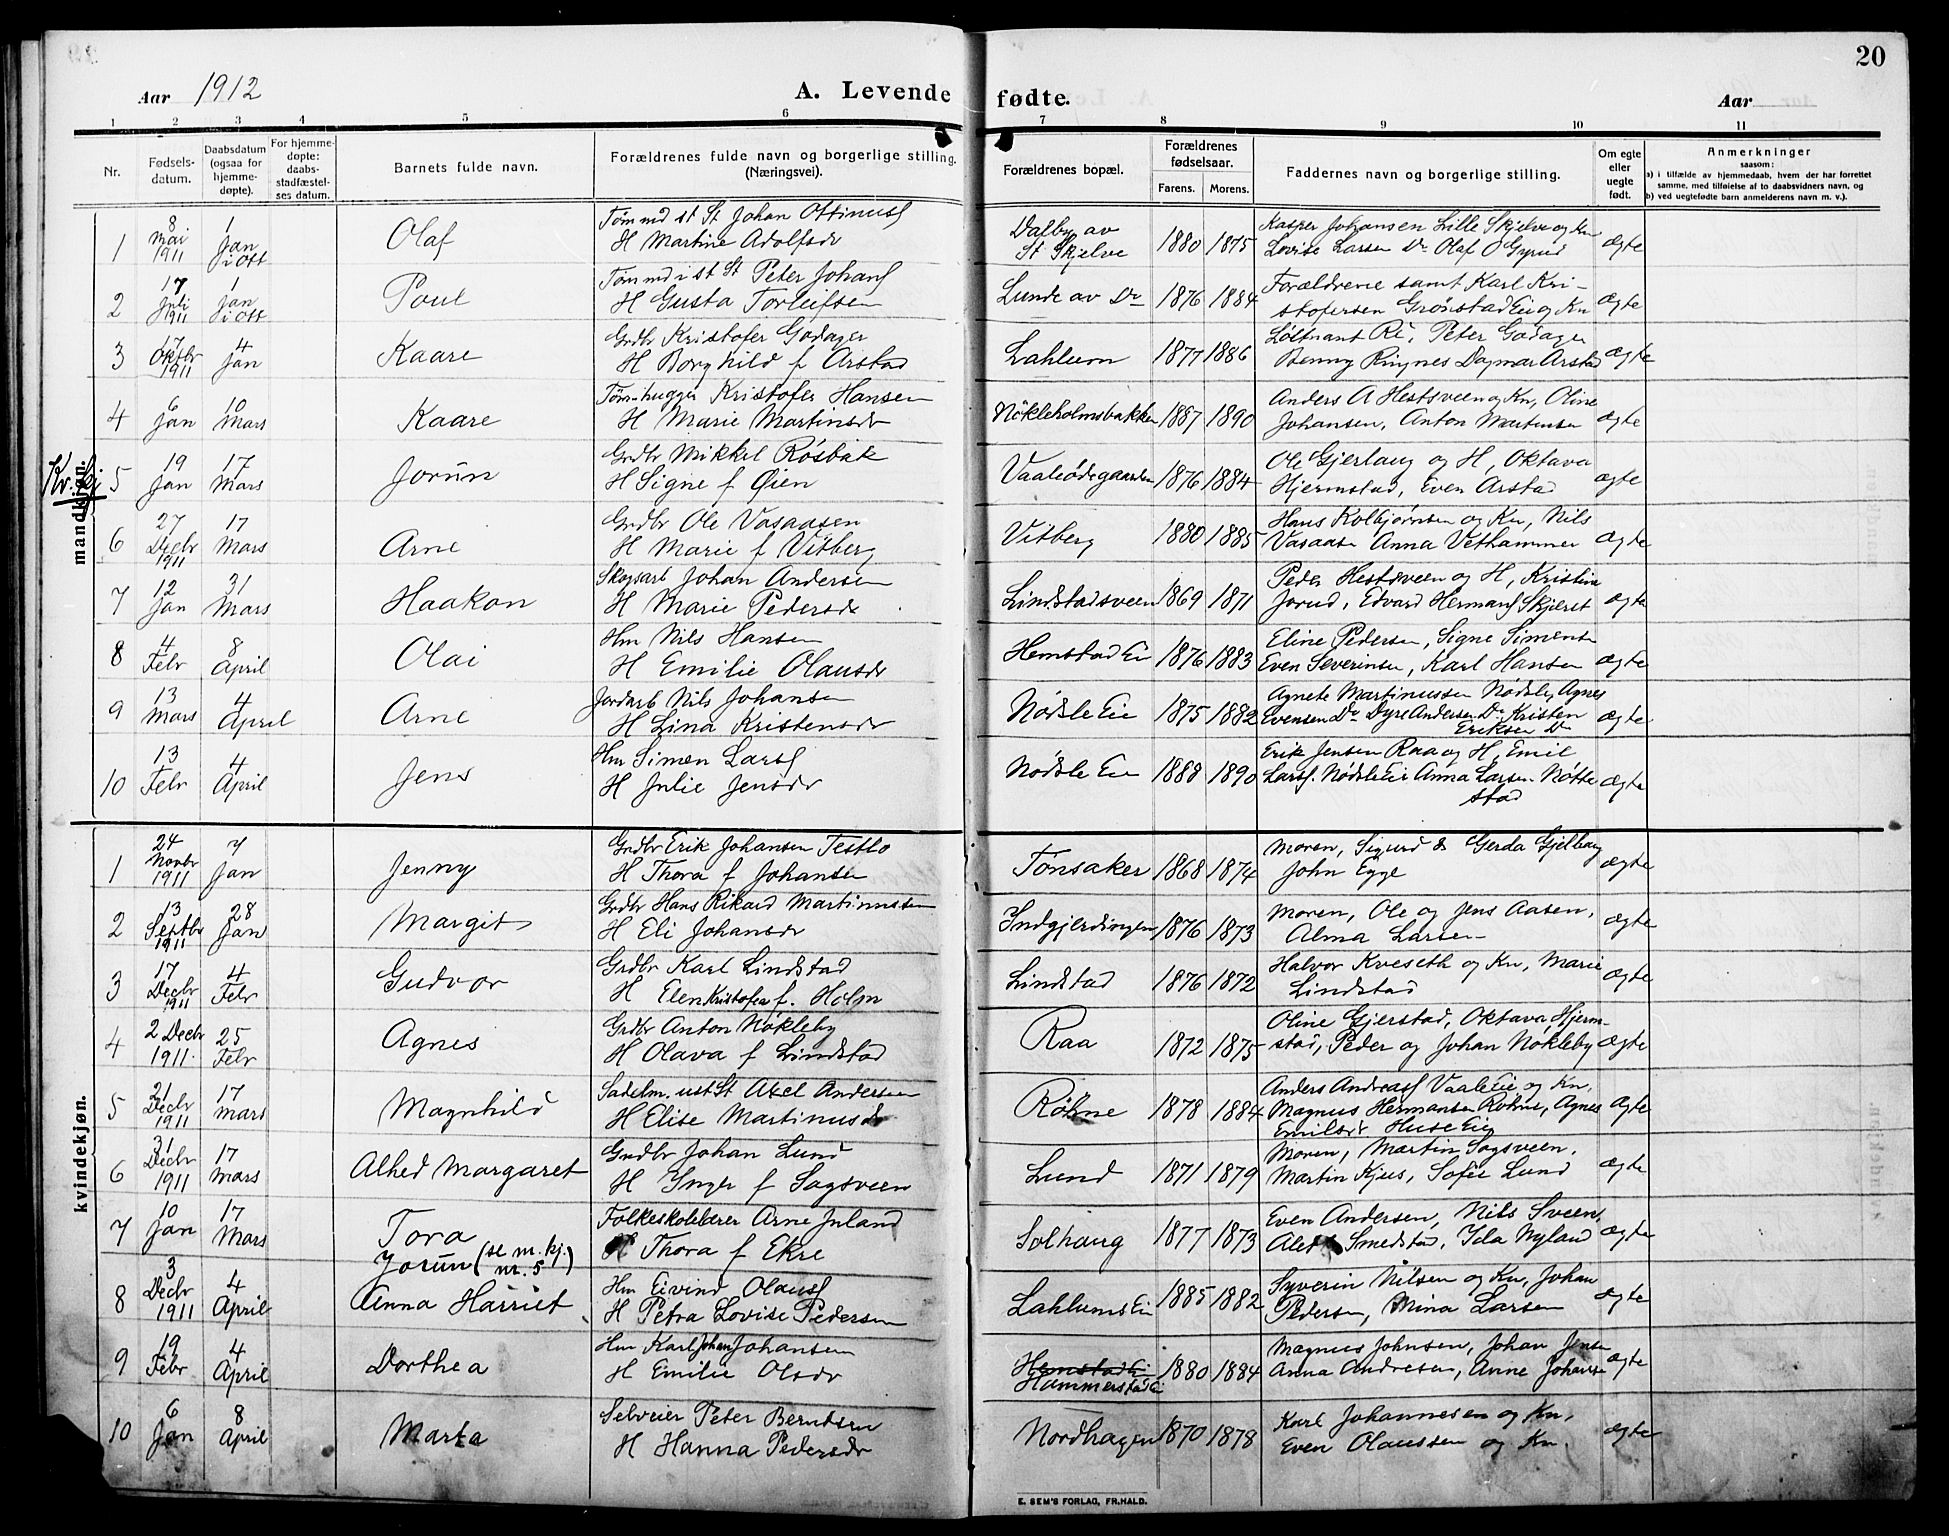 20
Aar 1912
A. Levende fødte.
Aar
1 2 3 4 5 6 7 8 9 10 11
Nr.
Fødsels-
datum.
Daabsdatum
(ogsaa for
hjemme-
døpte).
For hjemme-
døpte:
daabs-
stadfæstel-
ses datum.
Barnets fulde navn.
Forældrenes fulde navn og borgerlige stilling.
(Næringsvei).
Forældrenes bopæl.
Forældrenes
fødselsaar.
Farens. Morens.
Faddernes navn og borgerlige stilling.
Om egte
eller
uegte
født.
Anmerkninger
saasom:
a) i tilfælde av hjemmedaab, hvem der har forrettet
samme, med tilføielse af to daabsvidners navn, og
b) ved uegtefødte barn anmelderens navn m. v.).
mandkjøn.
1 8 Mai 1911 1 Jan Olaf
Johan Ottinus
H Martine Adolfsdr
Dalby av
St Skjelve
1880 1875
Kasper Johansen Lille Skjelve og
Lovise Larsen Do Olaf O Gyrud
ægte
2 17 Juli 1911 1 Jan Poul
Peter Johans
H Gusta Torleifsen
Lunde av Do
1876 1884
Forældrene samt Karl Kri-
stofersen Grønstad Eie og Kn
ægte
3 17 Oktbr 1911 4 Jan Kaare
Grdbr Kristofer Godager
H Borghild f Arstad
Lahlum
1877 1886
Løitnant Peter Godager
Benny Ringnes Dagmar Arstad
ægte
4 6 Jan 10 Mars Kaare
Tøm-hugger Kristofer Hansen
H Marie Martinsdr
Nökleholmsbakken
1887 1890
Anders A Hestsveen og Kn, Oline
Johansen, Anton Martinsen
ægte
Kv. kj
5 19 Jan 17 Mars Jorun
Grdbr Mikkel Rosbak
H Signe f Øien
Vaaleødegaarden
1876 1884
Ole Gjerlaug og H, Oktava
Hjermstad, Even Arstad
ægte
6 27 Decbr 1911 17 Mars Arne
Grdbr Ole Vasaasen
H Marie f Vitberg
Vitberg
1880 1885
Hans Kolbjørnsen og Kn, Nils
Vasaasen Anna Vethammer
ægte
7 12 Jan 31 Mars Haakon
Skogsarb Johan Andersen
H Marie Pedersdr
Lindstadsveen
1869 1871
Peder Hestsveen og H, Kristine
Jorud, Edvard Hermans Skjeset
ægte
8 4 Febr 8 April Olai
Hm Nils Hansen
H Emilie Olausdr
Hemstad Eie
1876 1883
Eline Pedersen, Signe Simens
Even Severinsen, Karl Hansen
ægte
9 13 Mars 4 April Arne
Jordarb Nils Johansen
H Lina Kristensdr
Nødsle Eie
1875 1882
Agnete Martinussen Nødsle, Agnes
Evensen Do Dyre Andersen Do Kristen
Eriksen Do
ægte
10 13 Febr 4 April Jens
Hm Simen Lars
H Julie Jensdr
Nødsle Eie
1888 1890
Erik Jensen Raa og H, Emil
Lars. Nødsle Eie Anna Larsen Nøtte
stad
ægte
kvindekjøn.
1 24 Novbr 1911 7 Jan Jenny
Grdbr Erik Johansen Testlo
H Thora f Johansen
Tønsaker
1868 1874
Moren, Sigurd & Gerda Gjelberg
John Egge
ægte
2 13 Septbr 1911 28 Jan Margit
Grdbr Hans Rikard Martinussen
H Eli Johansdr
Indgjerdingen
1876 1873
Moren, Ole og Jens Aasen,
Alma Larsen
ægte
3 17 Decbr 1911 4 Febr Gudvor
Grdbr Karl Lindstad
H Elen Kristofersd f. Holm
Lindstad
1876 1872
Halvor Kveseth og Kn, Marie
Lindstad
ægte
4 2 Decbr 1911 25 Febr Agnes
Grdbr Anton Nøkleby
H Olava f Lindstad
Raa
1872 1875
Oline Gjerstad, Oktava Hjerm-
stad, Peder og Johan Nøkleby
ægte
5 21 Decbr 1911 17 Mars Magnhild
Sadelm. ust St Axel Andersen
H Elise Martinusdr
Röhne
1878 1884
Anders Andreas Vaale Eie og Kn.
Magnus Hermansen Rohne, Agnes
Emilsdr Huse Eie
Ægte
6 31 Decbr 1911 17 Mars Alhed Margaret
Grdbr Johan Lund
H Inger f Sagsveen
Lund
1871 1879
Moren, Martin Sagsveen,
Martin Kjus, Sofie Lund
ægte
7 10 Jan 17 Mars Tora
Folkeskolelærer Arne Juland
H Thora f Ekre
Solhaug
1877 1873
Even Andersen, Nils Sveen,
Smedstad, Ida Nyland
ægte
Jorun (se m. kj. nr. 5)
8 3 Decbr 1911 4 April Anna Harriet
Hm Eivind Olaus
H Petra Lovise Pedersen
Lahlums Ei
1885 1882
Syverin Nilsen og Kn, Johan
Pedersen, Mina Larsen
ægte
9 19 Febr 4 April Dorthea
Hm Karl Johan Johansen
H Emilie Olsdr
Hemstad Ei
Hammerstad Ei
1880 1884
Magnus Johnsen, Johan Jensen
Anna Andresen, Anne Johans
ægte
10 6 Jan 8 April Marta
Selveier Peter Berntsen
H Hanna Pedersdr
Nordhagen
1870 1878
Karl Johannesen og Kn,
Even Olaussen og Kn.
ægte
E. SEM'S FORLAG, FR.HALD.